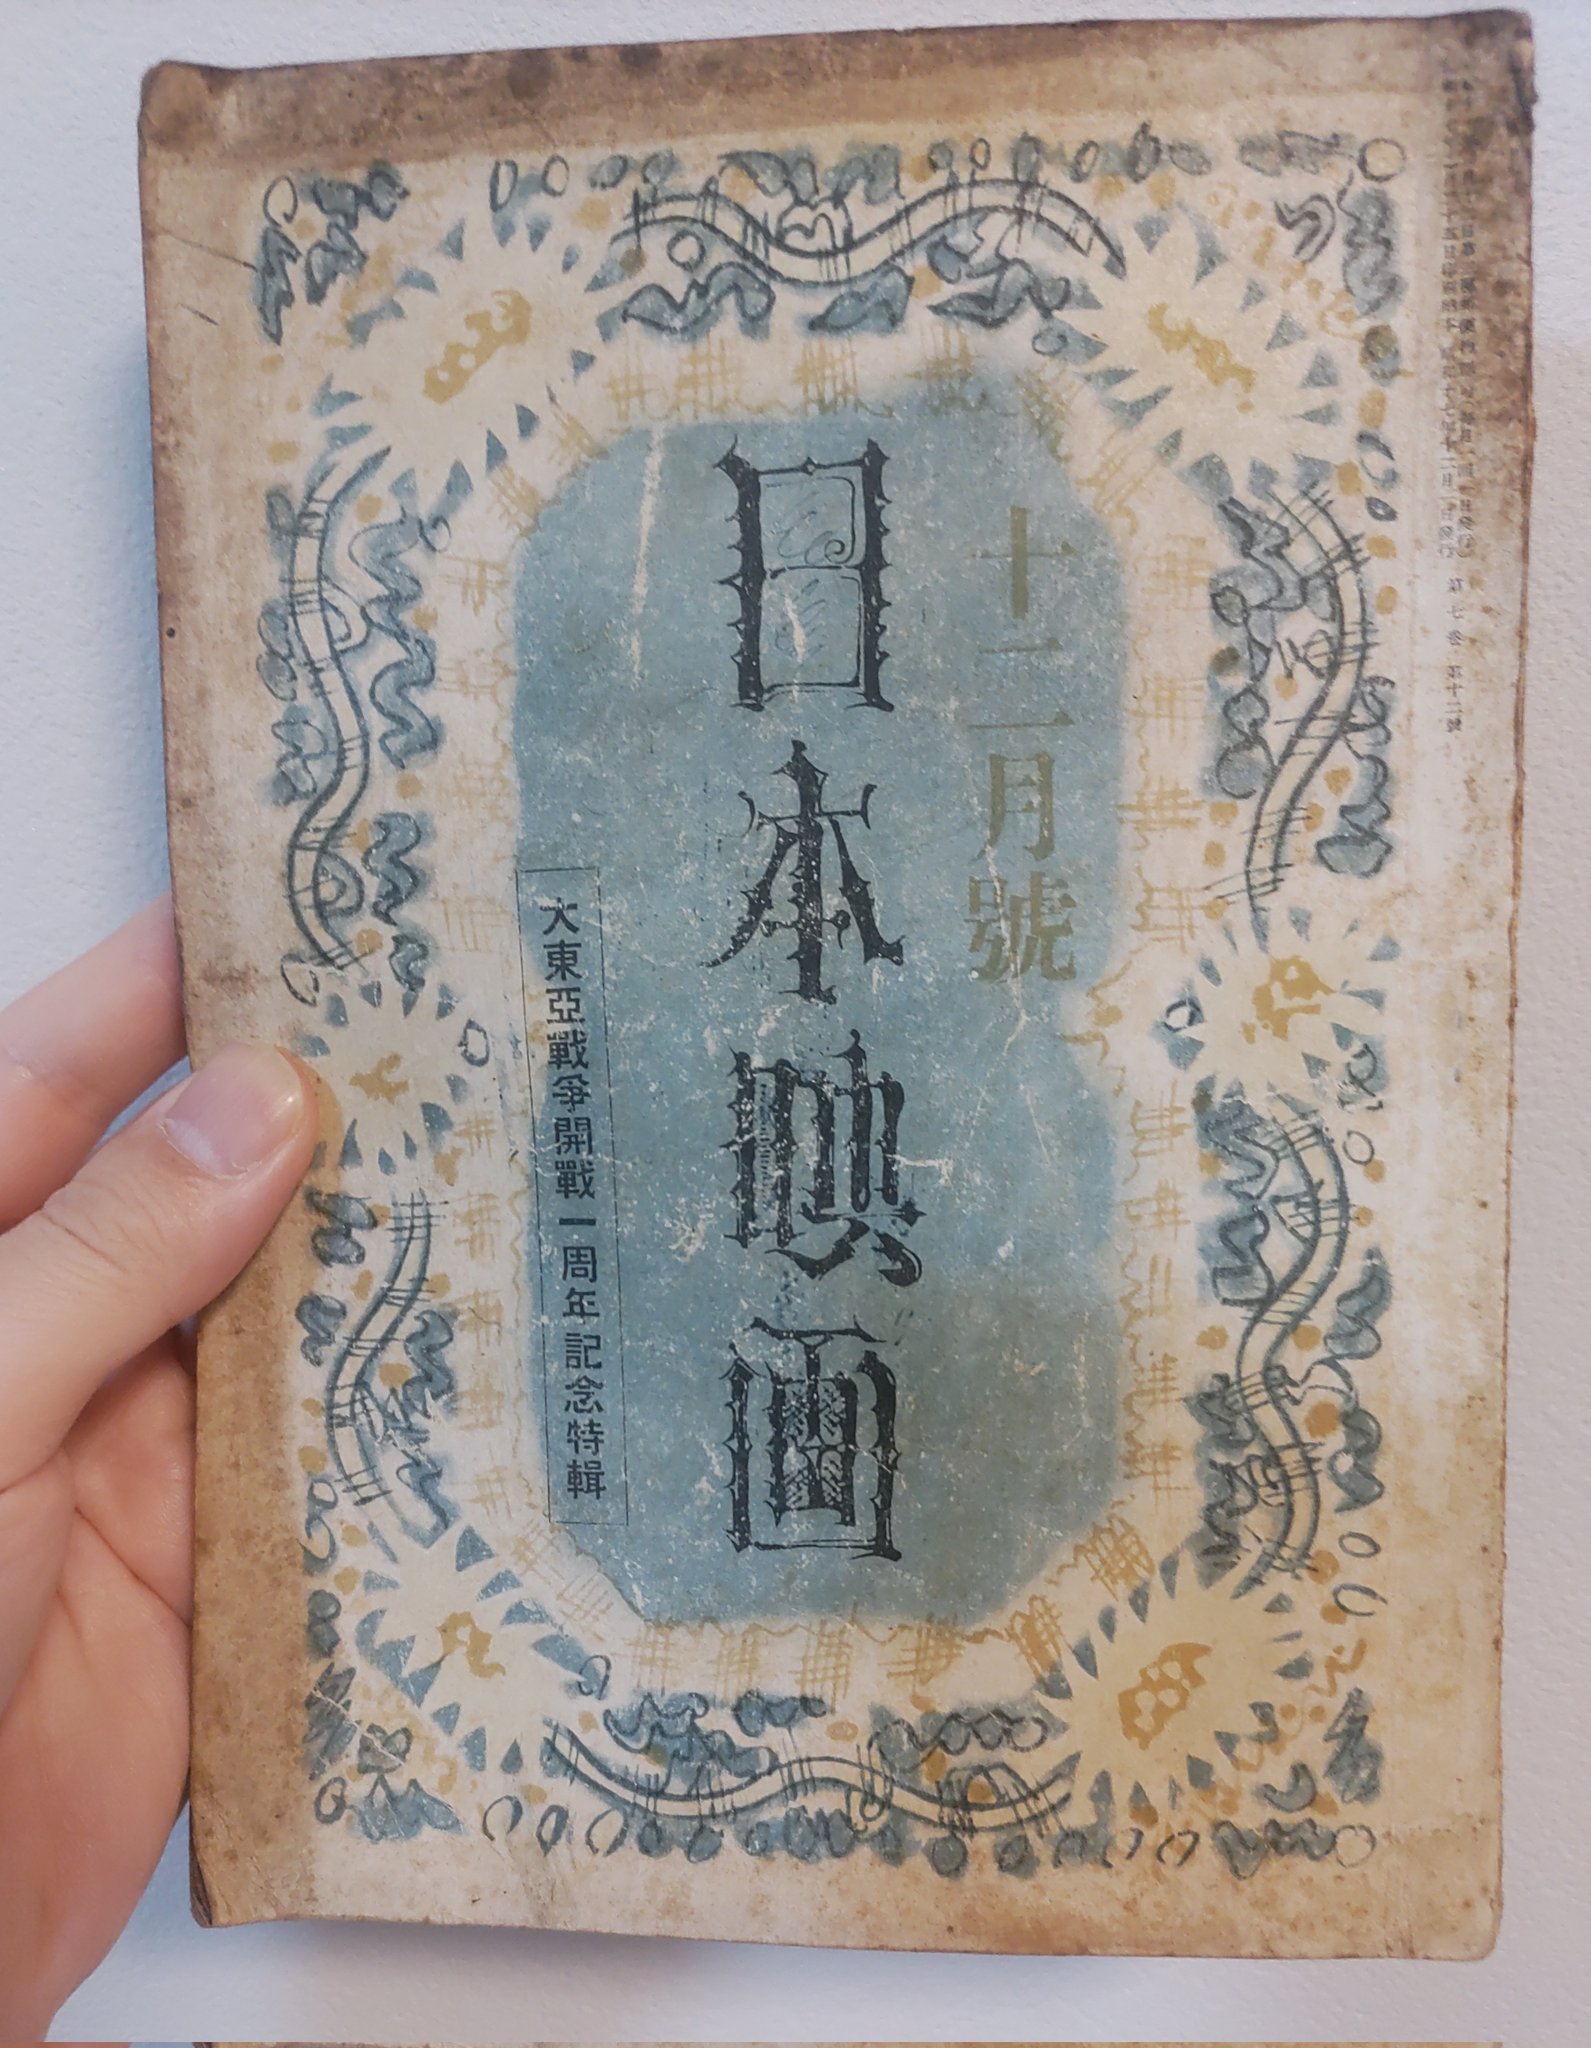 十二月一日發行 第七卷 第十二號
十二月號
日本映画
大東亞戰爭開戰一周年記念特輯